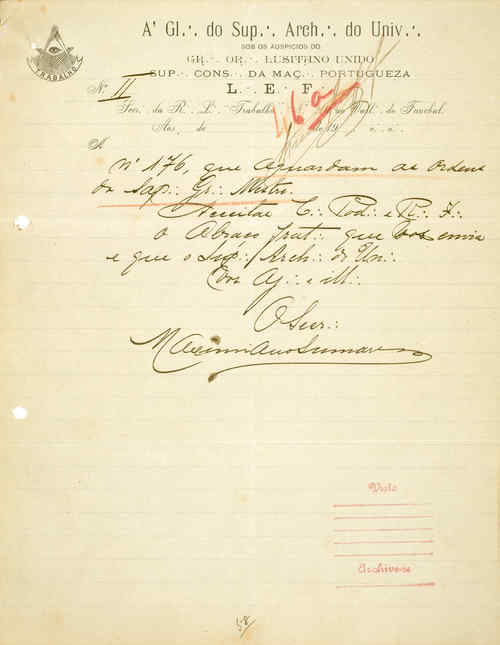 A' Gl∴ do Sup∴ Arch∴ do Univ∴
SOB OS AUSPICIOS DO
GR∴ OR∴ LUSITANO UNIDO
SUP∴ CONS∴ DA MAÇ∴ PORTUGUEZA
TRABALHO
Nº II
L. E. F.
46a
Secr. da R∴ L∴ Trabalho ao Vall∴ do Funchal
Aos, de de 19
A
nº 176, que aguardam as ordens
do Sap∴ Gr∴ Mestr∴
Acceitae C∴ Pod∴ e R∴ I∴
o Abraço frat∴ que vos envia
e que o Sup∴ Arch∴ do Un∴
Vos Aj∴ e ill∴
O Secr∴
Visto
Archive-se
58